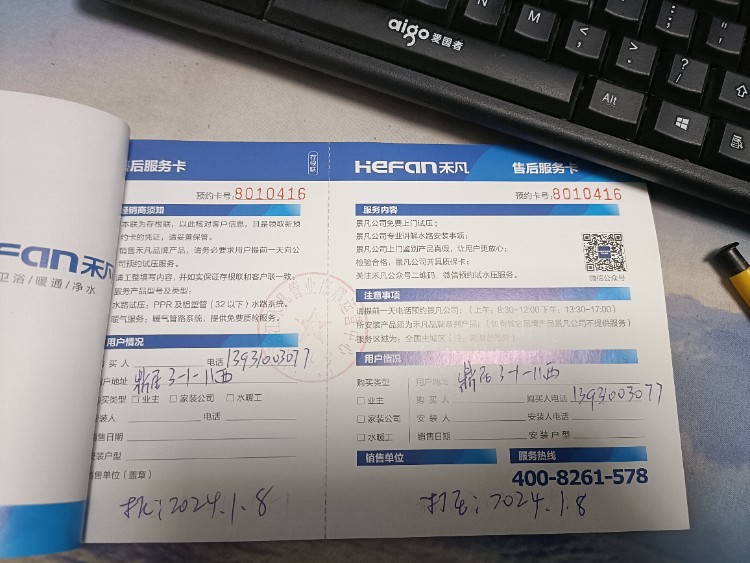 aigo 爱国者
N
M
<
,
>
.
?
/
Alt
Fan禾凡
卫浴/暖通/净水
售后服务卡
存根联
预约卡号:8010416
经销商须知
本联为存根联，以此核对客户信息，且是领取新预
约卡的凭证，请妥善保管。
销售禾凡品牌产品，请务必要求用户提前一天向公
司预约试压服务。
请工整填写内容，并如实保证存根联和客户联一致。
服务产品型号及类型：
水路试压：PPR及铝塑管（32以下）水路系统。
暖气服务：暖气管路系统，提供免费质检服务。
用户情况
购买人 电话 13931003077
用户地址 鼎石3-1-11西
购买类型 □业主 □家装公司 □水暖工
安装人 电话
销售日期
安装户型
销售单位（盖章）
2024.1.8
HeFan禾凡 售后服务卡
预约卡号:8010416
服务内容
景凡公司免费上门试压；
景凡公司专业讲解水路安装事项；
景凡公司上门鉴别产品真假，让用户更放心；
检验合格，景凡公司开具质保卡；
关注禾凡公众号二维码，微信预约试水压服务。
微信公众号
注意事项
请提前一天电话预约景凡公司：（上午：8:30-12:00 下午：13:30-17:00）
所安装产品须为禾凡品牌系列产品；（如有其它品牌产品景凡公司不提供服务）
服务区域为：全国主城区
用户情况
购买类型 用户地址 鼎石3-1-11西
□业主 购买人 购买人电话 13931003077
□家装公司 安装人 安装人电话
□水暖工 销售日期 安装户型
销售单位 服务热线
400-8261-578
2024.1.8